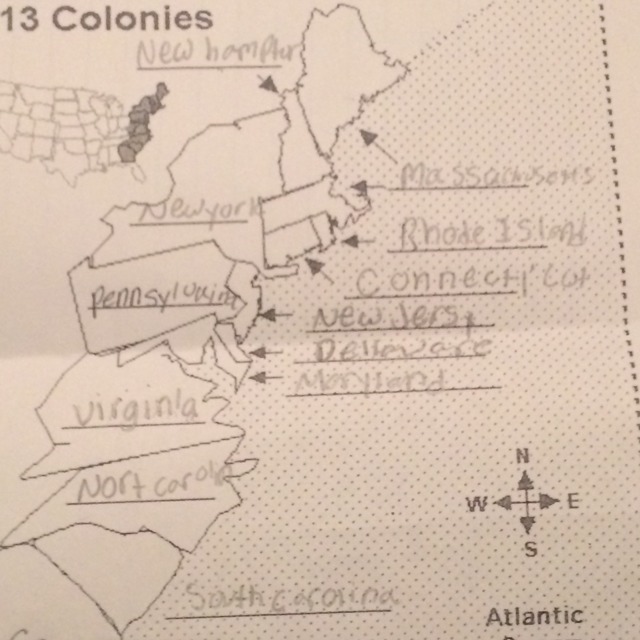 13 Colonies
New hampshr
Massachusetts
New york
Rhode Island
Connecti'cut
Pennsylvania
New Jersy
Delleware
Maryland
Virginia
Nort carolina
N
W E
S
South carolina
Atlantic